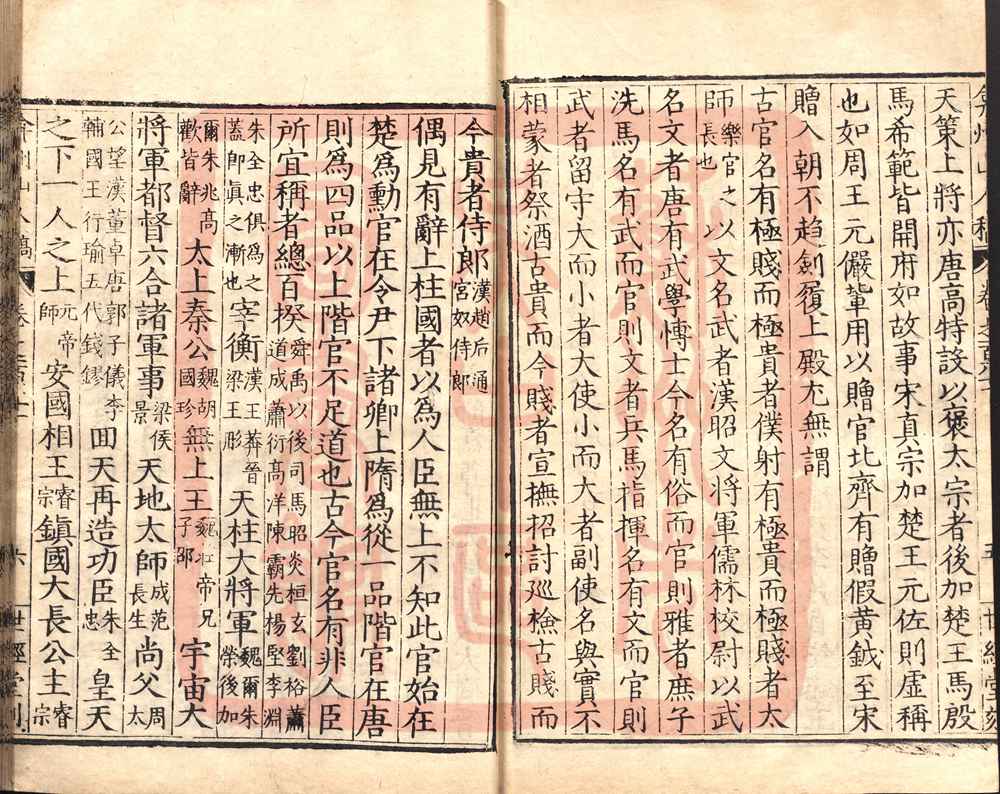 弇州山人稿 卷之一百六十 五 世經堂刻
天策上將亦唐高特設以褒太宗者後加楚王馬殷
馬希範皆開府如故事宋真宗加楚王元佐則虛稱
也如周王元儼輩用以贈官北齊有贈假黃鉞至宋
贈入 朝不趨劍履上殿尤無謂
古官名有極賤而極貴者僕射有極貴而極賤者太
師樂官之長也以文名武者漢昭文將軍儒林校尉以武
名文者唐有武學博士今名有俗而官則雅者庶子
洗馬名有武而官則文者兵馬指揮名有文而官則
武者留守大而小者大使小而大者副使名與實不
相蒙者祭酒古貴而今賤者宣撫招討巡檢古賤而
今貴者侍郎漢趙后通宮奴侍郎
偶見有辭上柱國者以為人臣無上不知此官始在
楚為勳官在令尹下諸卿上隋為從一品階官在唐
則為四品以上階官不足道也古今官名有非人臣
所宜稱者總百揆舜禹以後司馬昭炎桓玄劉裕蕭道成蕭衍高洋陳霸先楊堅李淵
朱全忠俱為之蓋即真之漸也宰衡漢王莽晉梁王肜天柱大將軍魏爾朱榮後加
爾朱兆高歡皆辭太上秦公魏胡國珍無上王魏莊帝兄子邵宇宙大
將軍都督六合諸軍事梁侯景天地太師成范長生尚父周太
公望漢董卓唐郭子儀李輔國王行瑜五代錢鏐回天再造功臣朱全忠皇天
之下一人之上元帝師安國相王睿宗鎮國大長公主睿宗
弇州山人稿 卷之一百六十 六 世經堂刻